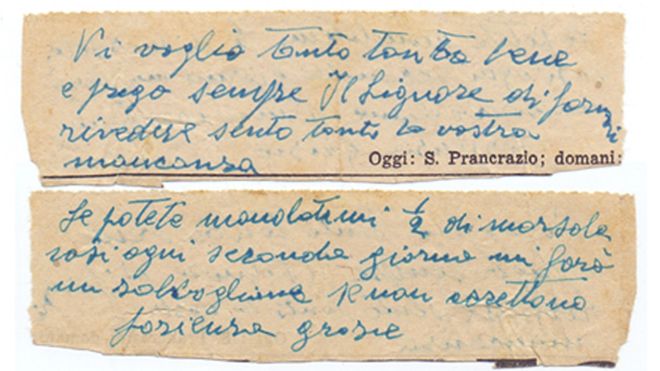 Vi voglio tanto tanto bene
e prego sempre Il Signore di farvi
rivedere sento tanto la vostra
mancanza
Oggi: S. Prancrazio; domani:
Se potete mandatemi ½ di marsala
cosi ogni seconda giorno mi farò
un se non accettano
pasienza grasie